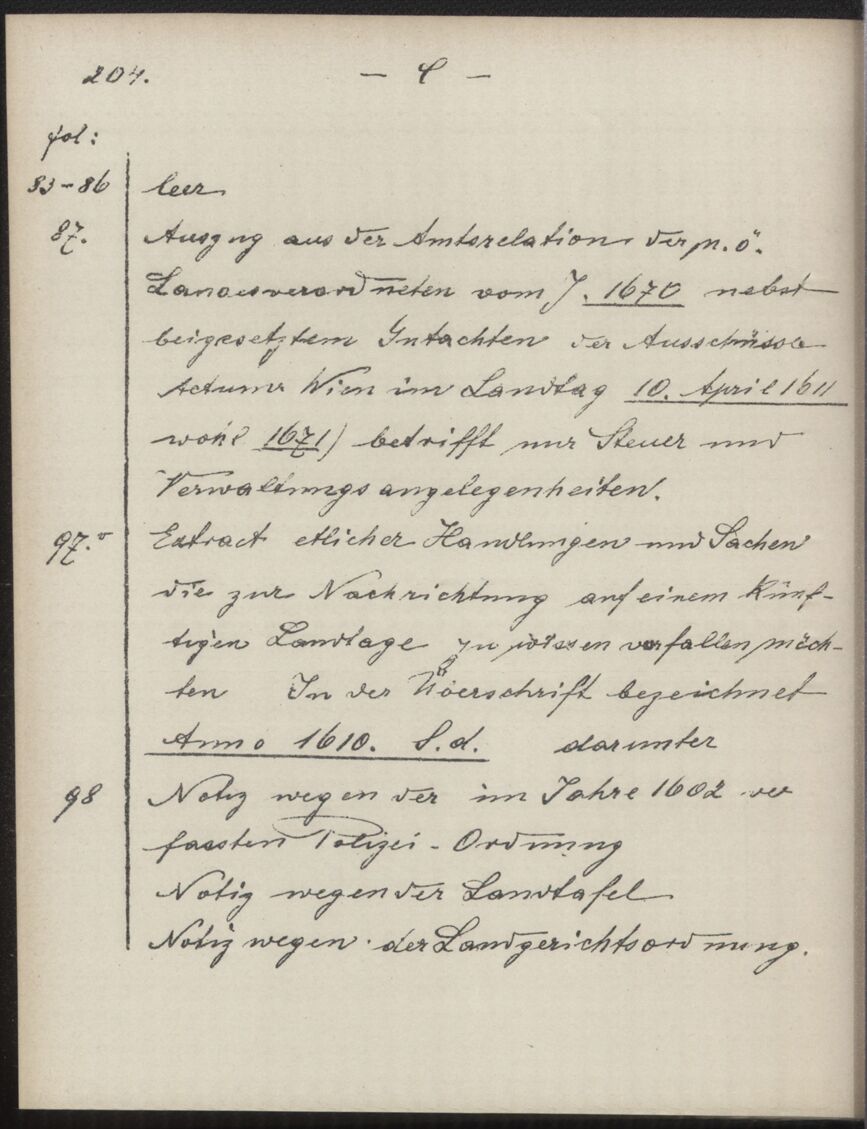 204. — C —
fol:
83-86 leer
87. Auszug aus der Amtsrelation der n. ö.
Landesverordneten vom J. 1670 nebst
beigesetztem Gutachten der Ausschüsse
Actum Wien im Landtag 10. April 1611
wohl 1671) betrifft nur Steuer und
Verwaltungsangelegenheiten.
97.v Extract etlicher Handlungen und Sachen
die zur Nachrichtung auf einem künf-
tigen Landtage zu wissen vorfallen möch-
ten In der Überschrift bezeichnet
Anno 1610. S.d. darunter
98 Notiz wegen der im Jahre 1602 ver
fassten Polizei-Ordnung
Notiz wegen der Landtafel
Notiz wegen der Landgerichtsordnung.